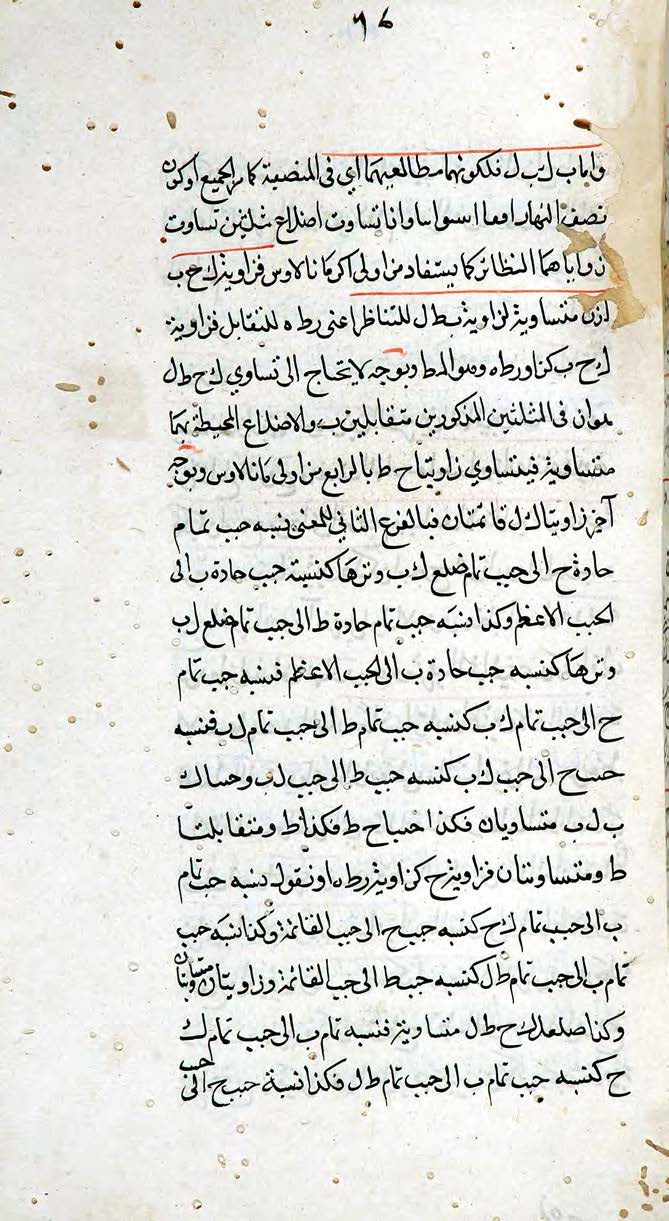 ٩٤
واما ب ك ب ل فلكونهما مطالعيهما اي في المنصفة كما مر الجميع او كون
نصف النهار افقا استوائيا واذا تساوت اضلاع مثلثين تساوت
زواياهما النظائر كما يستفاد من اولى اكر مانالاوس فزاوية ك ح ب
اذن متساوية لزاوية ب ط ل للتناظر اعني ر ط ه للتقابل فزاوية
ك ح ب كزاوية ر ط ه وهو المط وبوجه لا يحتاج الى تساوي ك ح ط ل
هو ان في المثلثين المذكورين متقابلتين ب والاضلاع المحيطة بهما
متساوية فيتساوى زاويتا ح ط بالرابع من اولى مانالاوس وبوجه
آخر زاويتا ك ل قائمتان فبالفرع الثاني للمغني نسبه جيب تمام
حادة ح الى جيب تمام ضلع ك ب وترها كنسبة جيب حادة ب الى
الجيب الاعظم وكذا نسبه جيب تمام حادة ط الى جيب تمام ضلع ل ب
وترها كنسبه جيب حادة ب الى الجيب الاعظم فنسبه جيب تمام
ح الى جيب تمام ك ب كنسبه جيب تمام ط الى جيب تمام ل ب فنسبه
جيب ح الى جيب ك ب كنسبه جيب ط الى جيب ل ب وجيبا ك
ب ل ب متساويان فكذا جيبا ح ط فكذا ح ط ومتقابلتا
ط متساويتان فزاوية ح كزاوية ر ط ه او نقول نسبه جيب تمام
ب الى جيب تمام ك ح كنسبه جيب ح الى جيب القائمة وكذا نسبه جيب
تمام ب الى جيب تمام ط ل كنسبه جيب ط الى جيب القائمة وزاويتان متساويتان
وكذا ضلعا ك ح ط ل متساوية فنسبه تمام ب الى جيب تمام ك
ح كنسبه جيب تمام ب الى جيب تمام ط ل فكذا نسبة جيب ح الى جيب